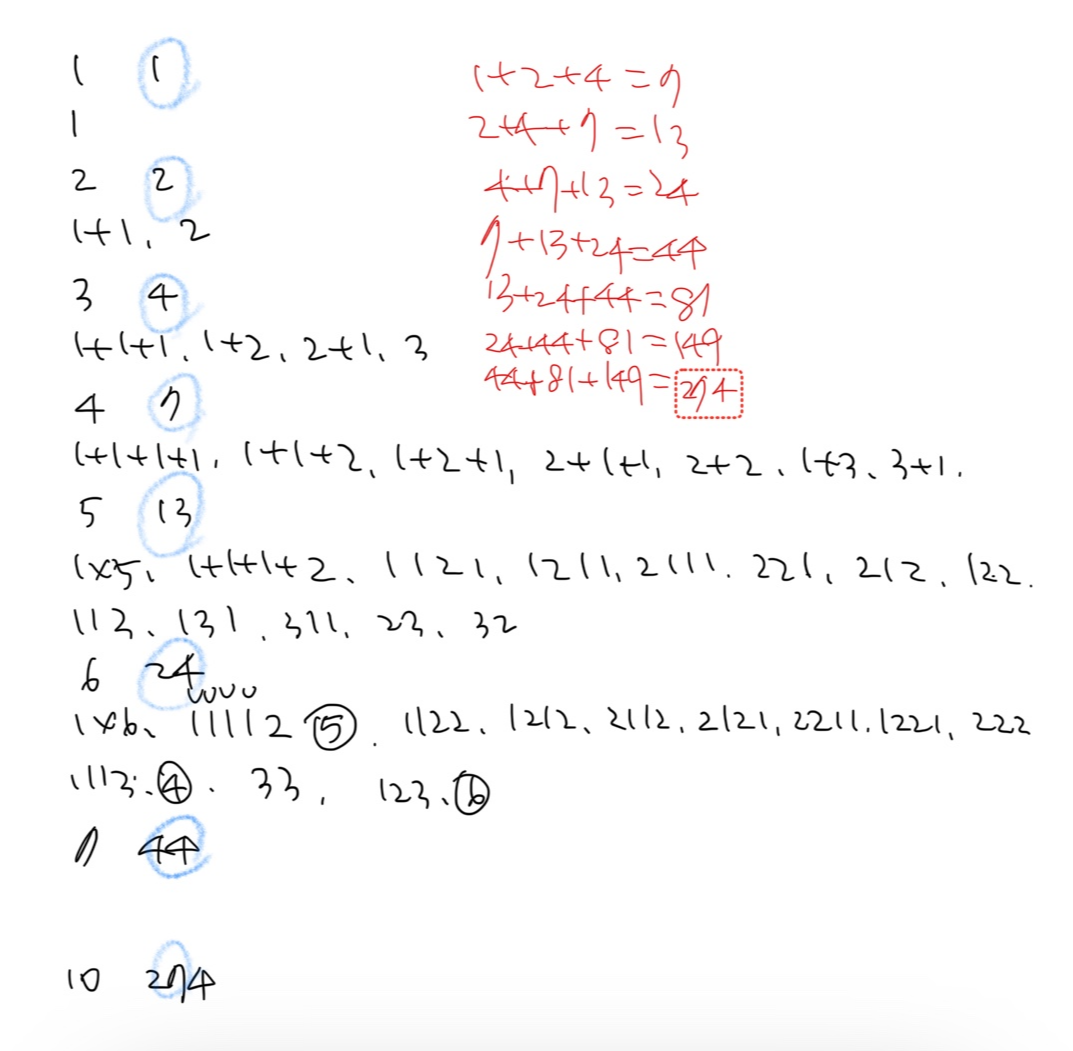 1 1
1
2 2
1+1, 2
3 4
1+1+1, 1+2, 2+1, 3
4 7
1+1+1+1, 1+1+2, 1+2+1, 2+1+1, 2+2, 1+3, 3+1.
5 13
1x5, 1+1+1+2, 1121, 1211, 2111. 221, 212, 122.
113, 131, 311, 23, 32
6 24
1x6, 11112 ⑤. 1122, 1212, 2112, 2121, 2211, 1221, 222
1113. ④. 33, 123. ⑥
7 44
10 274
1+2+4=7
2+4+7=13
4+7+13=24
7+13+24=44
13+24+44=81
24+44+81=149
44+81+149=274